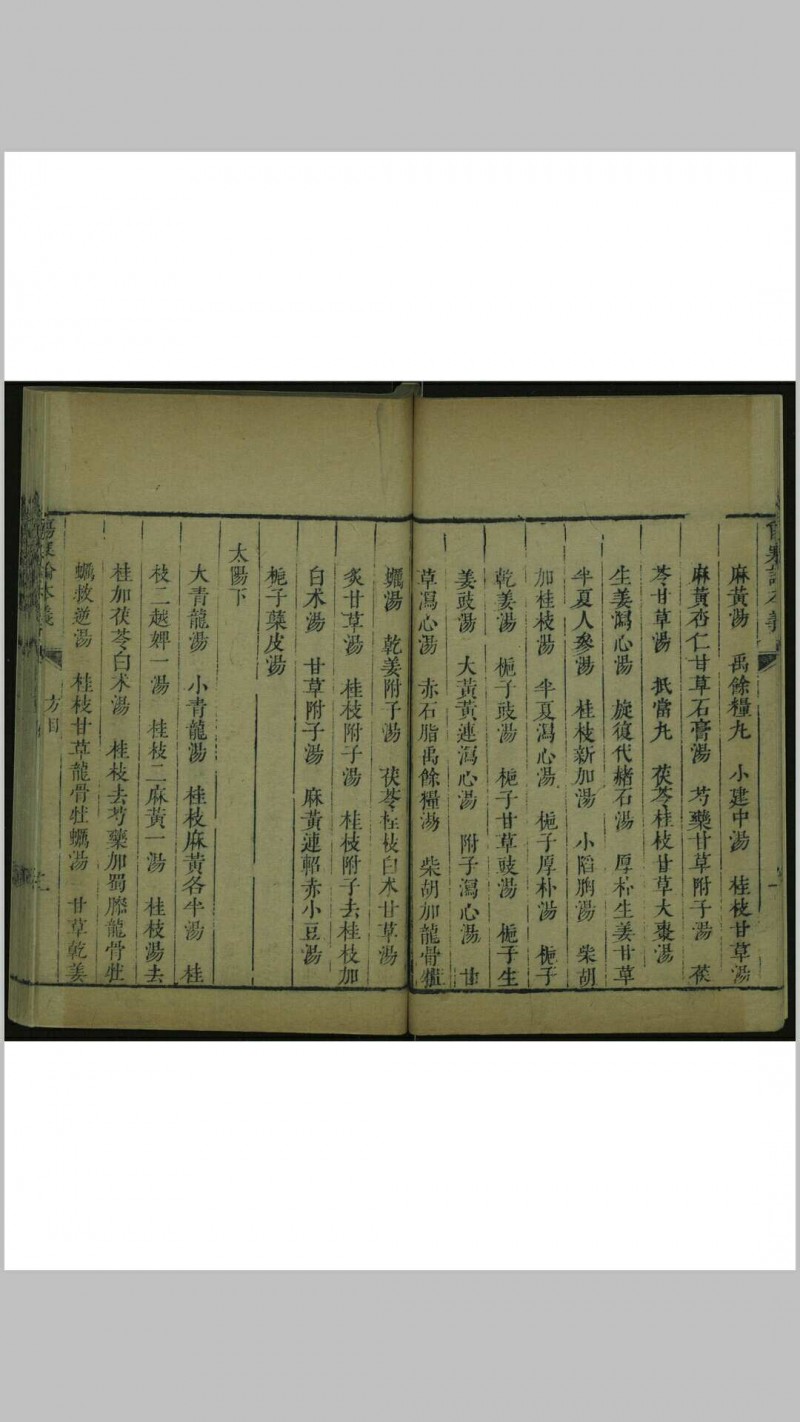 麻黃湯 禹餘糧丸 小建中湯 桂枝甘草湯
麻黃杏仁甘草石膏湯 芍藥甘草附子湯 茯
苓甘草湯 抵當丸 茯苓桂枝甘草大棗湯
生姜瀉心湯 旋復代赭石湯 厚朴生姜甘草
半夏人參湯 桂枝新加湯 小䧟胸湯 柴胡
加桂枝湯 半夏瀉心湯 梔子厚朴湯 梔子
乾姜湯 梔子豉湯 梔子甘草豉湯 梔子生
姜豉湯 大黃黃連瀉心湯 附子瀉心湯 甘
草瀉心湯 赤石脂禹餘糧湯 柴胡加龍骨牡
蠣湯 乾姜附子湯 茯苓桂枝白术甘草湯
炙甘草湯 桂枝附子湯 桂枝附子去桂枝加
白术湯 甘草附子湯 麻黃連軺赤小豆湯
梔子蘗皮湯
太陽下
大青龍湯 小青龍湯 桂枝麻黃各半湯 桂
枝二越婢一湯 桂枝二麻黃一湯 桂枝湯去
桂加茯苓白术湯 桂枝去芍藥加蜀𣾰龍骨牡
蠣救逆湯 桂枝甘草龍骨牡蠣湯 甘草乾姜
傷寒論本義 方目